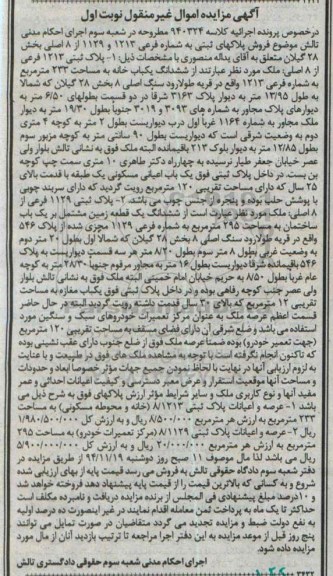 آگهی مزایده اموال غیرمنقول نوبت اول
درخصوص پرونده اجرائیه کلاسه ۹۴۰۳۲۴ مطروحه در شعبه سوم اجرای احکام مدنی
تالش موضوع فروش پلاکهای ثبتی به شماره فرعی ۱۲۱۳ و ۱۱۲۹ از ۸ اصلی بخش
۲۸ گیلان متعلق به آقای یداله منصوری با مشخصات ذیل: ۱- پلاک ثبتی ۱۲۱۳ فرعی
از ۸ اصلی: ملک مورد نظر عبارتند از ششدانگ یکباب خانه به مساحت ۲۳۳ مترمربع
به شماره فرعی ۱۲۱۳ واقع در قریه طولارود سنگ اصلی ۸ بخش ۲۸ گیلان که شمالا
به طول ۱۲/۹۵ متر به دیوار پلاک ۳۱۶۳ شرقا در دو قسمت بطولهای ۶/۵۰ متر به
دیوارهای پلاک مجاور به شماره های ۳۰۹۳ و ۳۰۱۹ جنوبا بطول ۱۹/۳۰ متر به دیوار
ملک مجاور به شماره ۱۱۶۴ غربا اول درب دیواریست بطول ۲ متر به کوچه ۴ متری
دوم به وضعیت شرقی است که دیواریست بطول ۹۰ سانتی متر به کوچه مزبور سوم
بطول ۱۲/۸۵ متر به دیوار بلوک ۲۱۳ باقیمانده البته ملک فوق به نشانی تالش بلوار ولی
عصر خیابان جعفر طیار نرسیده به چهارراه دکتر طاهری ۱۰ متری سمت چپ کوچه
بن بست. در داخل پلاک ثبتی فوق یک باب اعیانی مسکونی یک طبقه با قدمت بالای
۲۵ سال که دارای مساحت تقریبی ۱۲۰ مترمربع رویت گردید که دارای سربند چوبی
با پوشش حلب بوده و پنجره از جنس چوب می باشد. ۲- پلاک ثبتی ۱۱۲۹ فرعی از
۸ اصلی: ملک مورد نظر عبارت است از ششدانگ یک قطعه زمین مشتمل بر یک باب
ساختمان به مساحت ۲۹۵ مترمربع به شماره فرعی ۱۱۲۹ مجزی شده از پلاک ۵۴۶
واقع در قریه طولارود سنگ اصلی ۸ بخش ۲۸ گیلان که شمالا اول بطول ۲۰ متر دوم
به وضعیت غربی بطول ۸ متر سوم بطول ۸/۲۰ متر هر سه قسمت دیواریست به پلاک
۵۴۶ باقیمانده شرقا دیواریست بطول ۱۶ متر به مجاور مرقوم جنوبا ۲۸/۳۰ متر به کوچه
عام غربا بطول ۸/۵۰ به حریم خیابان امام خمینی البته ملک فوق به نشانی تالش بلوار
ولی عصر جنب کوچه رفاهی بوده و در داخل پلاک ثبتی فوق یکباب مغازه به مساحت
تقریبی ۱۲ مترمربع که بالای ۲۰ سال قدمت داشته رویت گردید البته در حال حاضر
قسمت اعظم عرصه ملک به عنوان مرکز تعمیرات خودروهای سبک و سنگین مورد
استفاده می باشد و ضلع شرقی آن دارای فضای مسقف به مساحت تقریبی ۱۲۰ مترمربع
(جهت تعمیر خودرو) بوده ضمنا عرصه ملک فوق از ضلع جنوب دارای عقب نشینی بوده
که تاکنون انجام نگرفته است با توجه به مشاهده ملک های فوق در طبیعت و با عنایت
به لزوم ارزیابی آنها در نهایت با لحاظ نمودن جمیع جهات مؤثر خصوصا ابعاد و حدودات
و مساحت آنها موقعیت استقرار و عرض معبر دسترسی و کیفیت اعیانات احداثی و عمر
مفید آنها و نوع کاربری ملک و سایر شرایط مؤثر ارزش پلاکهای فوق به شرح ذیل می
باشد ۱- عرصه و اعیانات پلاک ثبتی ۸/۱۲۱۳ (خانه و محوطه مسکونی) به مساحت
۲۳۳ مترمربع به ارزش هر مترمربع ۸/۵۰۰/۰۰۰ ریال و به ارزش کل ۱/۹۸۰/۵۰۰/۰۰۰
ریال ۲- عرصه و اعیانات پلاک ثبتی ۸/۱۱۲۹ (مرکز تعمیرات خودرو) به مساحت ۲۹۵
مترمربع به ارزش هر مترمربع ۲۰/۰۰۰/۰۰۰ ریال و به ارزش کل ۵/۹۰۰/۰۰۰/۰۰۰
ریال می باشد لذا مال موصوف ۱۱ صبح روز دوشنبه ۹۴/۱۱/۱۹ از طریق مزایده در
دفتر شعبه سوم دادگاه حقوقی تالش به فروش می رسد قیمت پایه از بهای ارزیابی شده
شروع و به کسانی که بالاترین قیمت را از قیمت پایه پیشنهاد دهد فروخته خواهد شد
و ۱۰ درصد مبلغ پیشنهادی فی المجلس از برنده مزایده دریافت و نامبرده مکلف است
حداکثر تا یک ماه به پرداخت ثمن معامله اقدام نمایند در غیر اینصورت ده درصد اولیه
به نفع دولت ضبط و مزایده تجدید می گردد متقاضیان در صورت تمایل می توانند
پنج روز قبل از موعد مزایده به این دفتر اجرا مراجعه تا ترتیب بازدید آنان از مال مورد
مزایده داده شود.
۳۴۳۲ اجرای احکام مدنی شعبه سوم حقوقی دادگستری تالش